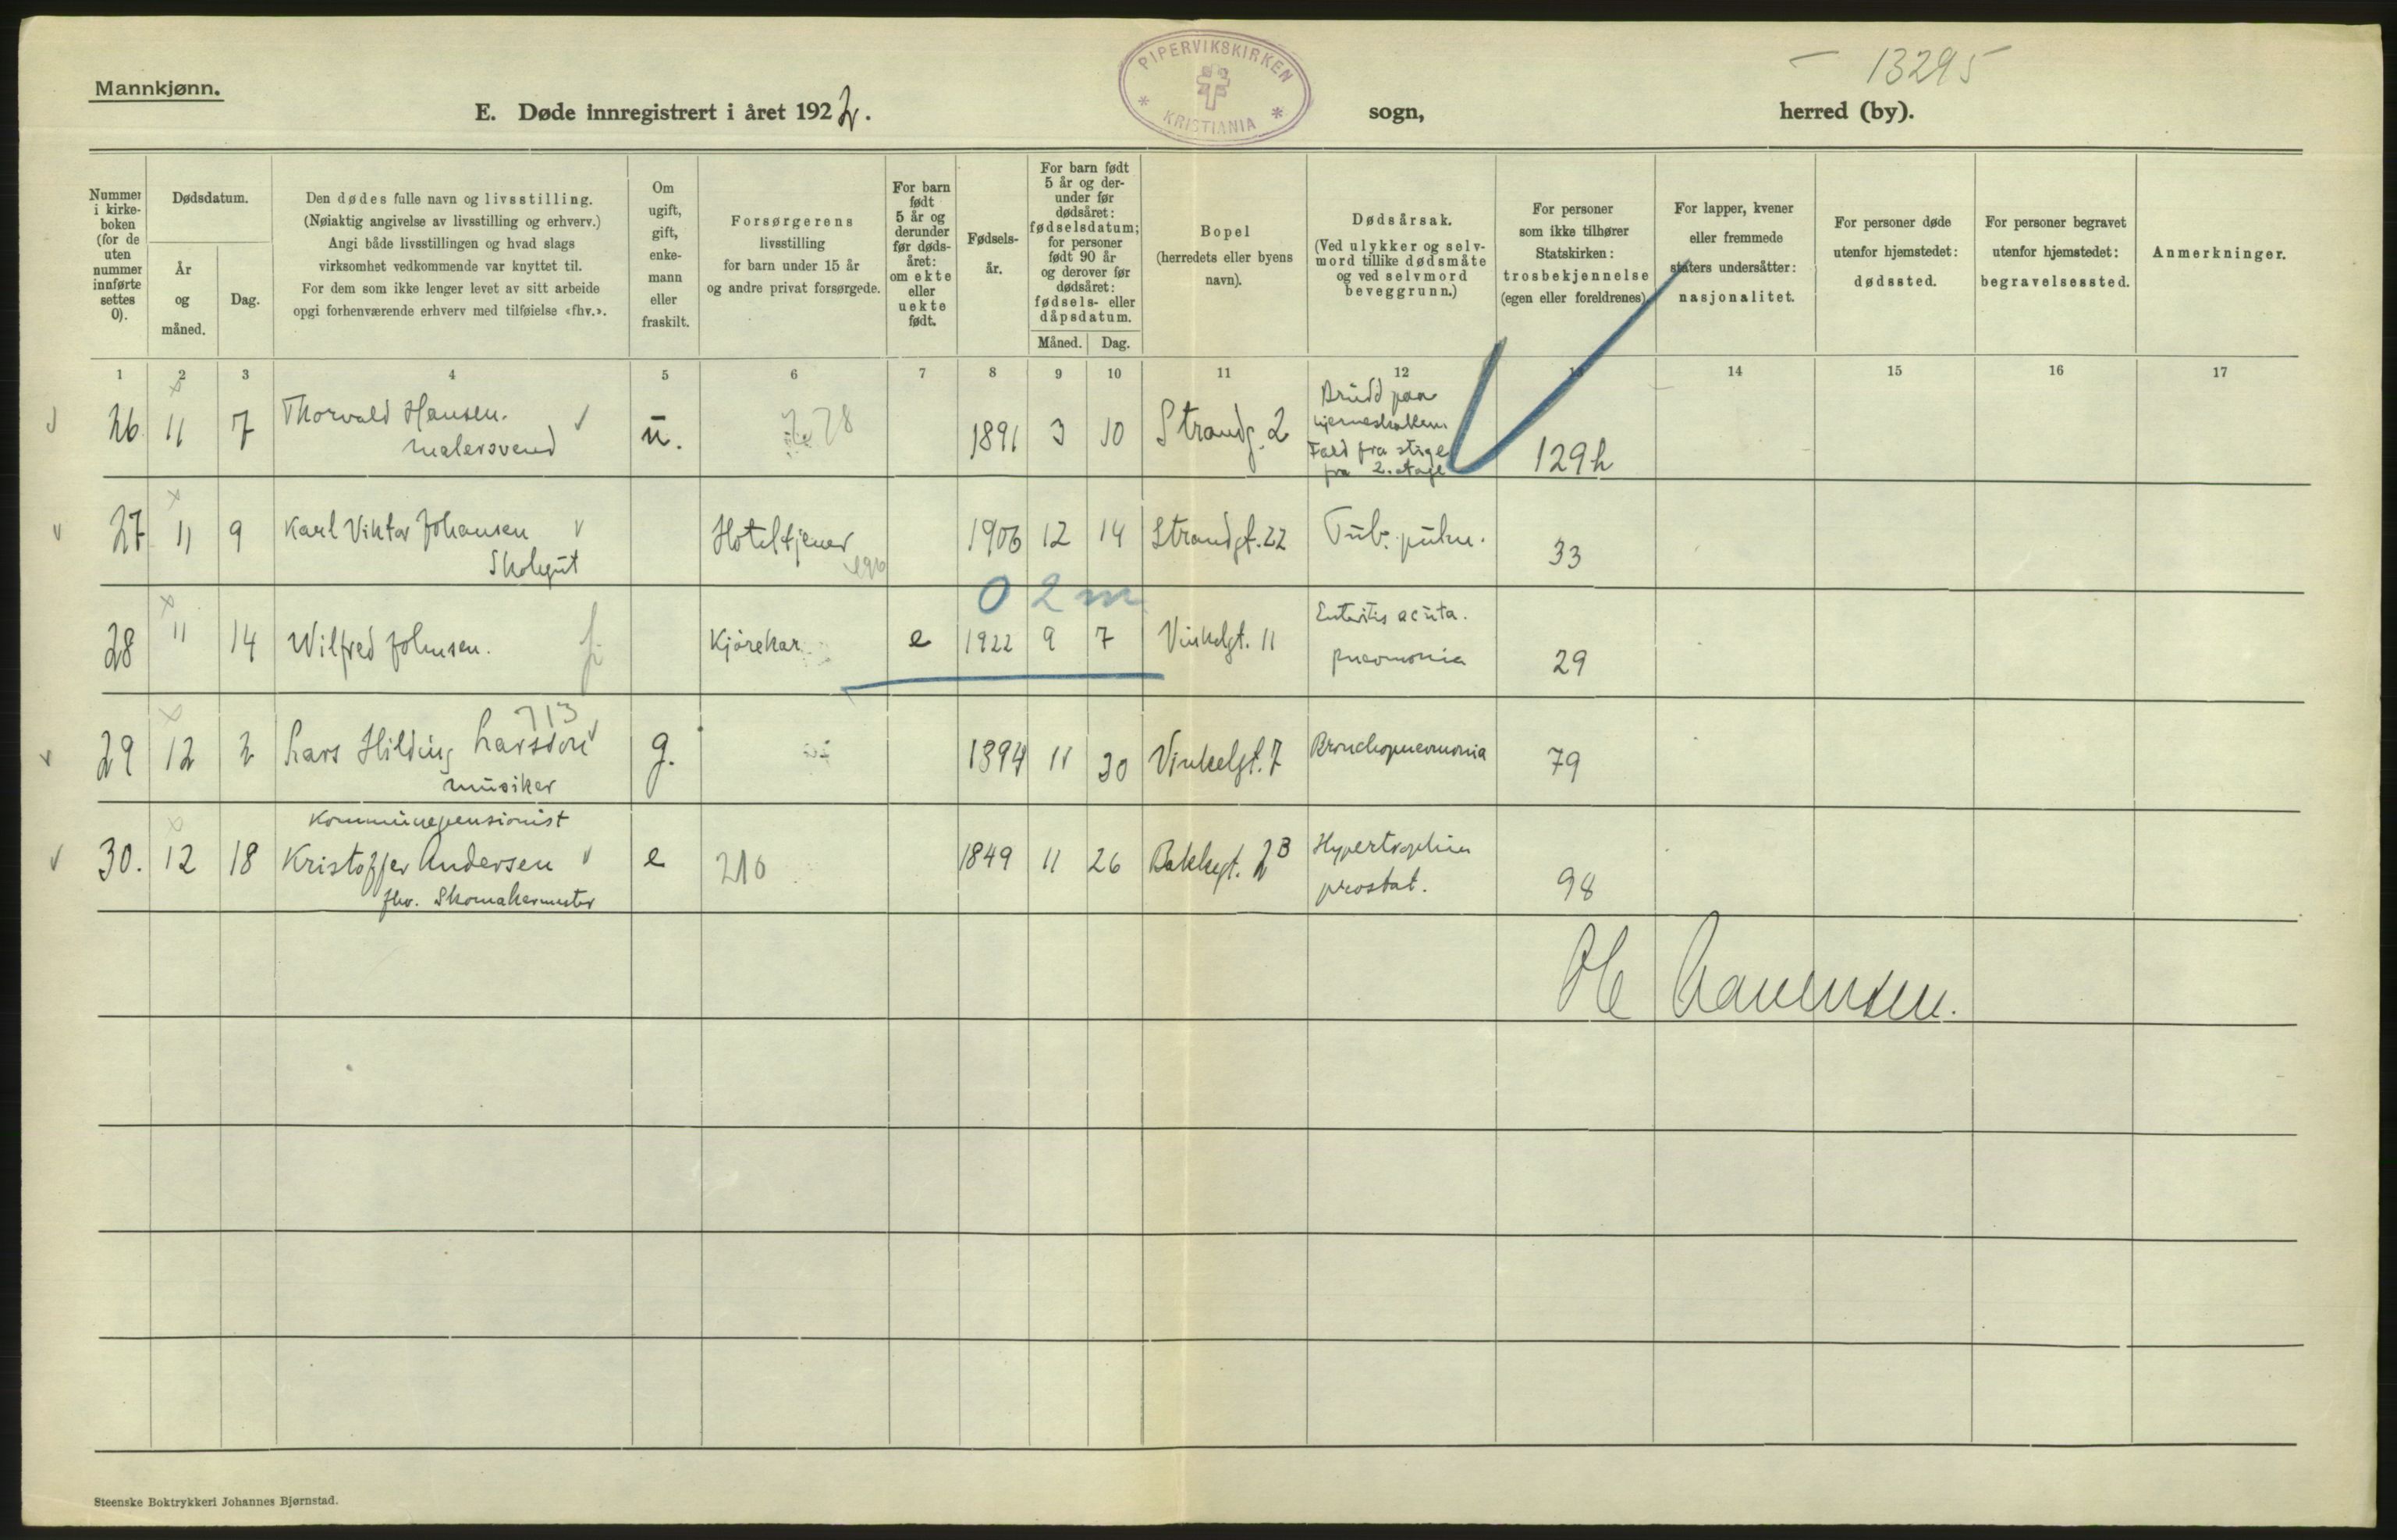 Mannkjønn.
E. Døde innregistrert i året 1922.
PIPERVIKSKIRKEN
* KRISTIANIA *
sogn,
13295
herred (by).
Nummer i kirke- boken (for de uten nummer innførte settes 0).
Dødsdatum.
År og måned.
Dag.
Den dødes fulle navn og livsstilling.
(Nøiaktig angivelse av livsstilling og erhverv.)
Angi både livsstillingen og hvad slags
virksomhet vedkommende var knyttet til.
For dem som ikke lenger levet av sitt arbeide
opgi forhenværende erhverv med tilføielse «fhv.».
Om ugift, gift, enke- mann eller fraskilt.
Forsørgerens
livsstilling
for barn under 15 år
og andre privat forsørgede.
For barn født 5 år og derunder før døds- året: om ekte eller uekte født.
Fødsels- år.
For barn født 5 år og der- under før dødsåret: fødselsdatum; for personer født 90 år og derover før dødsåret: fødsels- eller dåpsdatum.
Måned. Dag.
Bopel
(herredets eller byens
navn).
Dødsårsak.
(Ved ulykker og selv-
mord tillike dødsmåte
og ved selvmord
beveggrunn.)
For personer
som ikke tilhører
Statskirken:
trosbekjennelse
(egen eller foreldrenes).
For lapper, kvener
eller fremmede
staters undersåtter:
nasjonalitet.
For personer døde
utenfor hjemstedet:
dødssted.
For personer begravet
utenfor hjemstedet:
begravelsessted.
Anmerkninger.
1 2 3 4 5 6 7 8 9 10 11 12 13 14 15 16 17
26 11 7 Thorvald Hansen. malersvend u. 278 1891 3 10 Strandg. 2 Brudd paa hjerneskallen. Fald fra stige fra 2. etage 129h
27 11 9 Karl Viktor Johansen Skolegut Hoteltjener 1906 12 14 Strandgt. 22 Tub. pulm. 33
0 2 m
28 11 14 Wilfred Johnsen. Kjørekar e 1922 9 7 Vinkelgt. 11 Enteritis acuta. pneumonia 29
713
29 12 2 Lars Hilding Larsson musiker g. 1894 11 30 Vinkelgt. 7 Bronchopneumonia 79
Kommunepensionist
30. 12 18 Kristoffer Andersen fhv. Skomakermester e 210 1849 11 26 Bakkegt. 2B Hypertrophia prostat. 98
Steenske Boktrykkeri Johannes Bjørnstad.